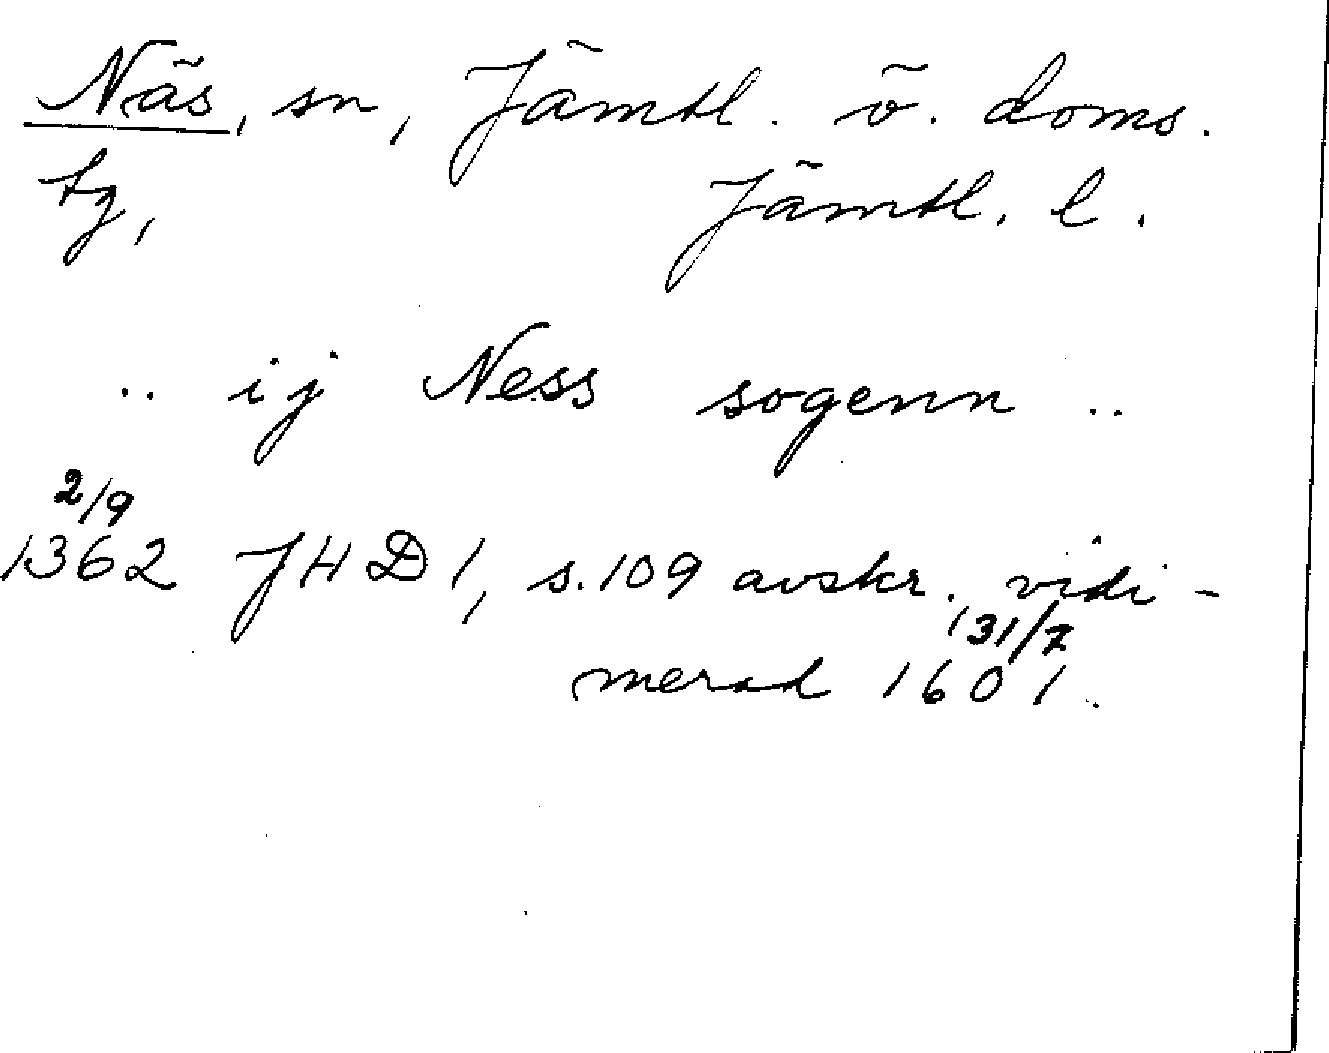 Näs, sn, Jämtl. ö. doms.
tg, Jämtl. l.
.. ij Ness sogenn ..
2/9
1362 JHD 1, s. 109 avskr. vidi-
31/7
merad 1601.